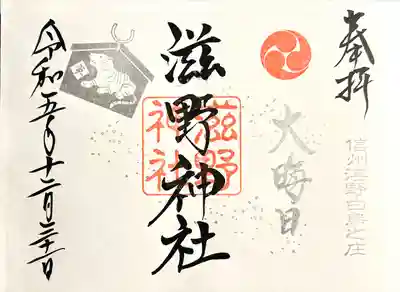 奉拝
信州滋野白鳥之庄
大晦日
滋野神社
滋野
神社
令和五年十二月三十一日